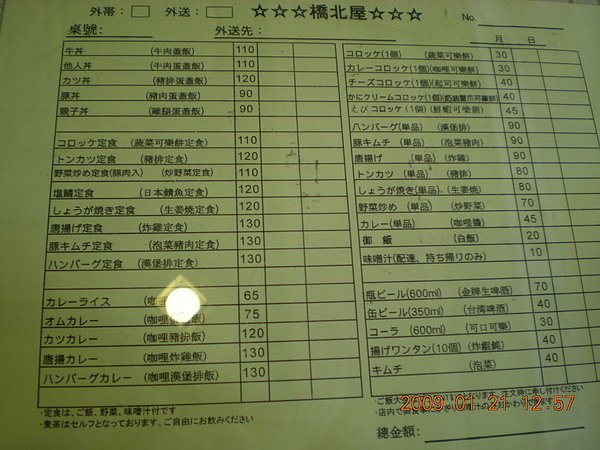 外帯： 外送： ☆☆☆橋北屋☆☆☆ No.
桌號： 外送先： 月 日
牛丼 (牛肉蓋飯) 110
他人丼 (牛肉蛋蓋飯) 110
カツ丼 (豬排蛋蓋飯) 120
豚丼 (豬肉蛋蓋飯) 90
親子丼 (雞腿蛋蓋飯) 90
コロッケ定食 (蔬菜可樂餅定食) 110
トンカツ定食 (豬排定食) 120
野菜炒め定食(豚肉入) (炒野菜定食) 110
塩鯖定食 (日本鯖魚定食) 120
しょうが焼き定食 (生姜燒定食) 120
唐揚げ定食 (炸雞定食) 130
豚キムチ定食 (泡菜豬肉定食) 130
ハンバーグ定食 (漢堡排定食) 130
カレーライス (咖 65
オムカレー (咖哩 飯) 75
カツカレー (咖哩豬排飯) 120
唐揚カレー (咖哩炸雞飯) 130
ハンバーグカレー (咖哩漢堡排飯) 130
・定食は、ご飯、野菜、味噌汁付です
・麦茶はセルフとなっております、ご自由にお飲みください
コロッケ(1個) (蔬菜可樂餅) 30
カレーコロッケ(1個)(咖哩可樂餅) 30
チーズコロッケ(1個)(起司可樂餅) 40
かにクリームコロッケ(1個)(奶油蟹爪可樂餅) 40
えびコロッケ(1個) (鮮蝦可樂餅) 45
ハンバーグ(単品) (漢堡排) 90
豚キムチ (単品) (泡菜豬肉) 90
唐揚げ (単品) (炸雞) 90
トンカツ (単品) (豬排) 80
しょうが焼き(単品) (生姜燒) 80
野菜炒め (単品) (炒野菜) 70
カレー(単品) (咖哩醬) 45
御 飯 (白飯) 20
味噌汁(配達、持ち帰りのみ) 10
瓶ビール(600ml) (金牌生啤酒) 70
缶ビール(350ml) (台湾啤酒) 40
コーラ (600ml) (可口可樂) 30
揚げワンタン(10個) (炸餛飩) 40
キムチ (泡菜) 40
・ご飯大 おります、注文時に申し付けください
・店内で
總金額：
2009.01.21 12:57